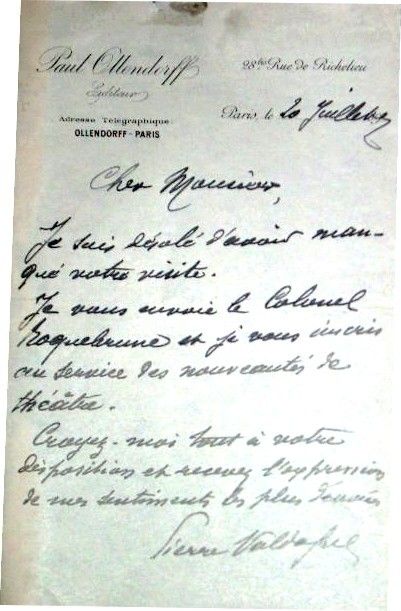 Paul Ollendorff
28bis Rue de Richelieu
Editeur
Paris, le 20 Juillet
Adresse Télégraphique
OLLENDORFF - PARIS
Cher Monsieur,
Je suis désolé d'avoir man-
qué votre visite.
Je vous envoie le Colonel
Roquebrune et je vous inscris
au service des nouveautés de
théâtre.
Croyez-moi tout à votre
disposition et recevez l'expression
de mes sentiments les plus dévoués
Pierre Valdagne